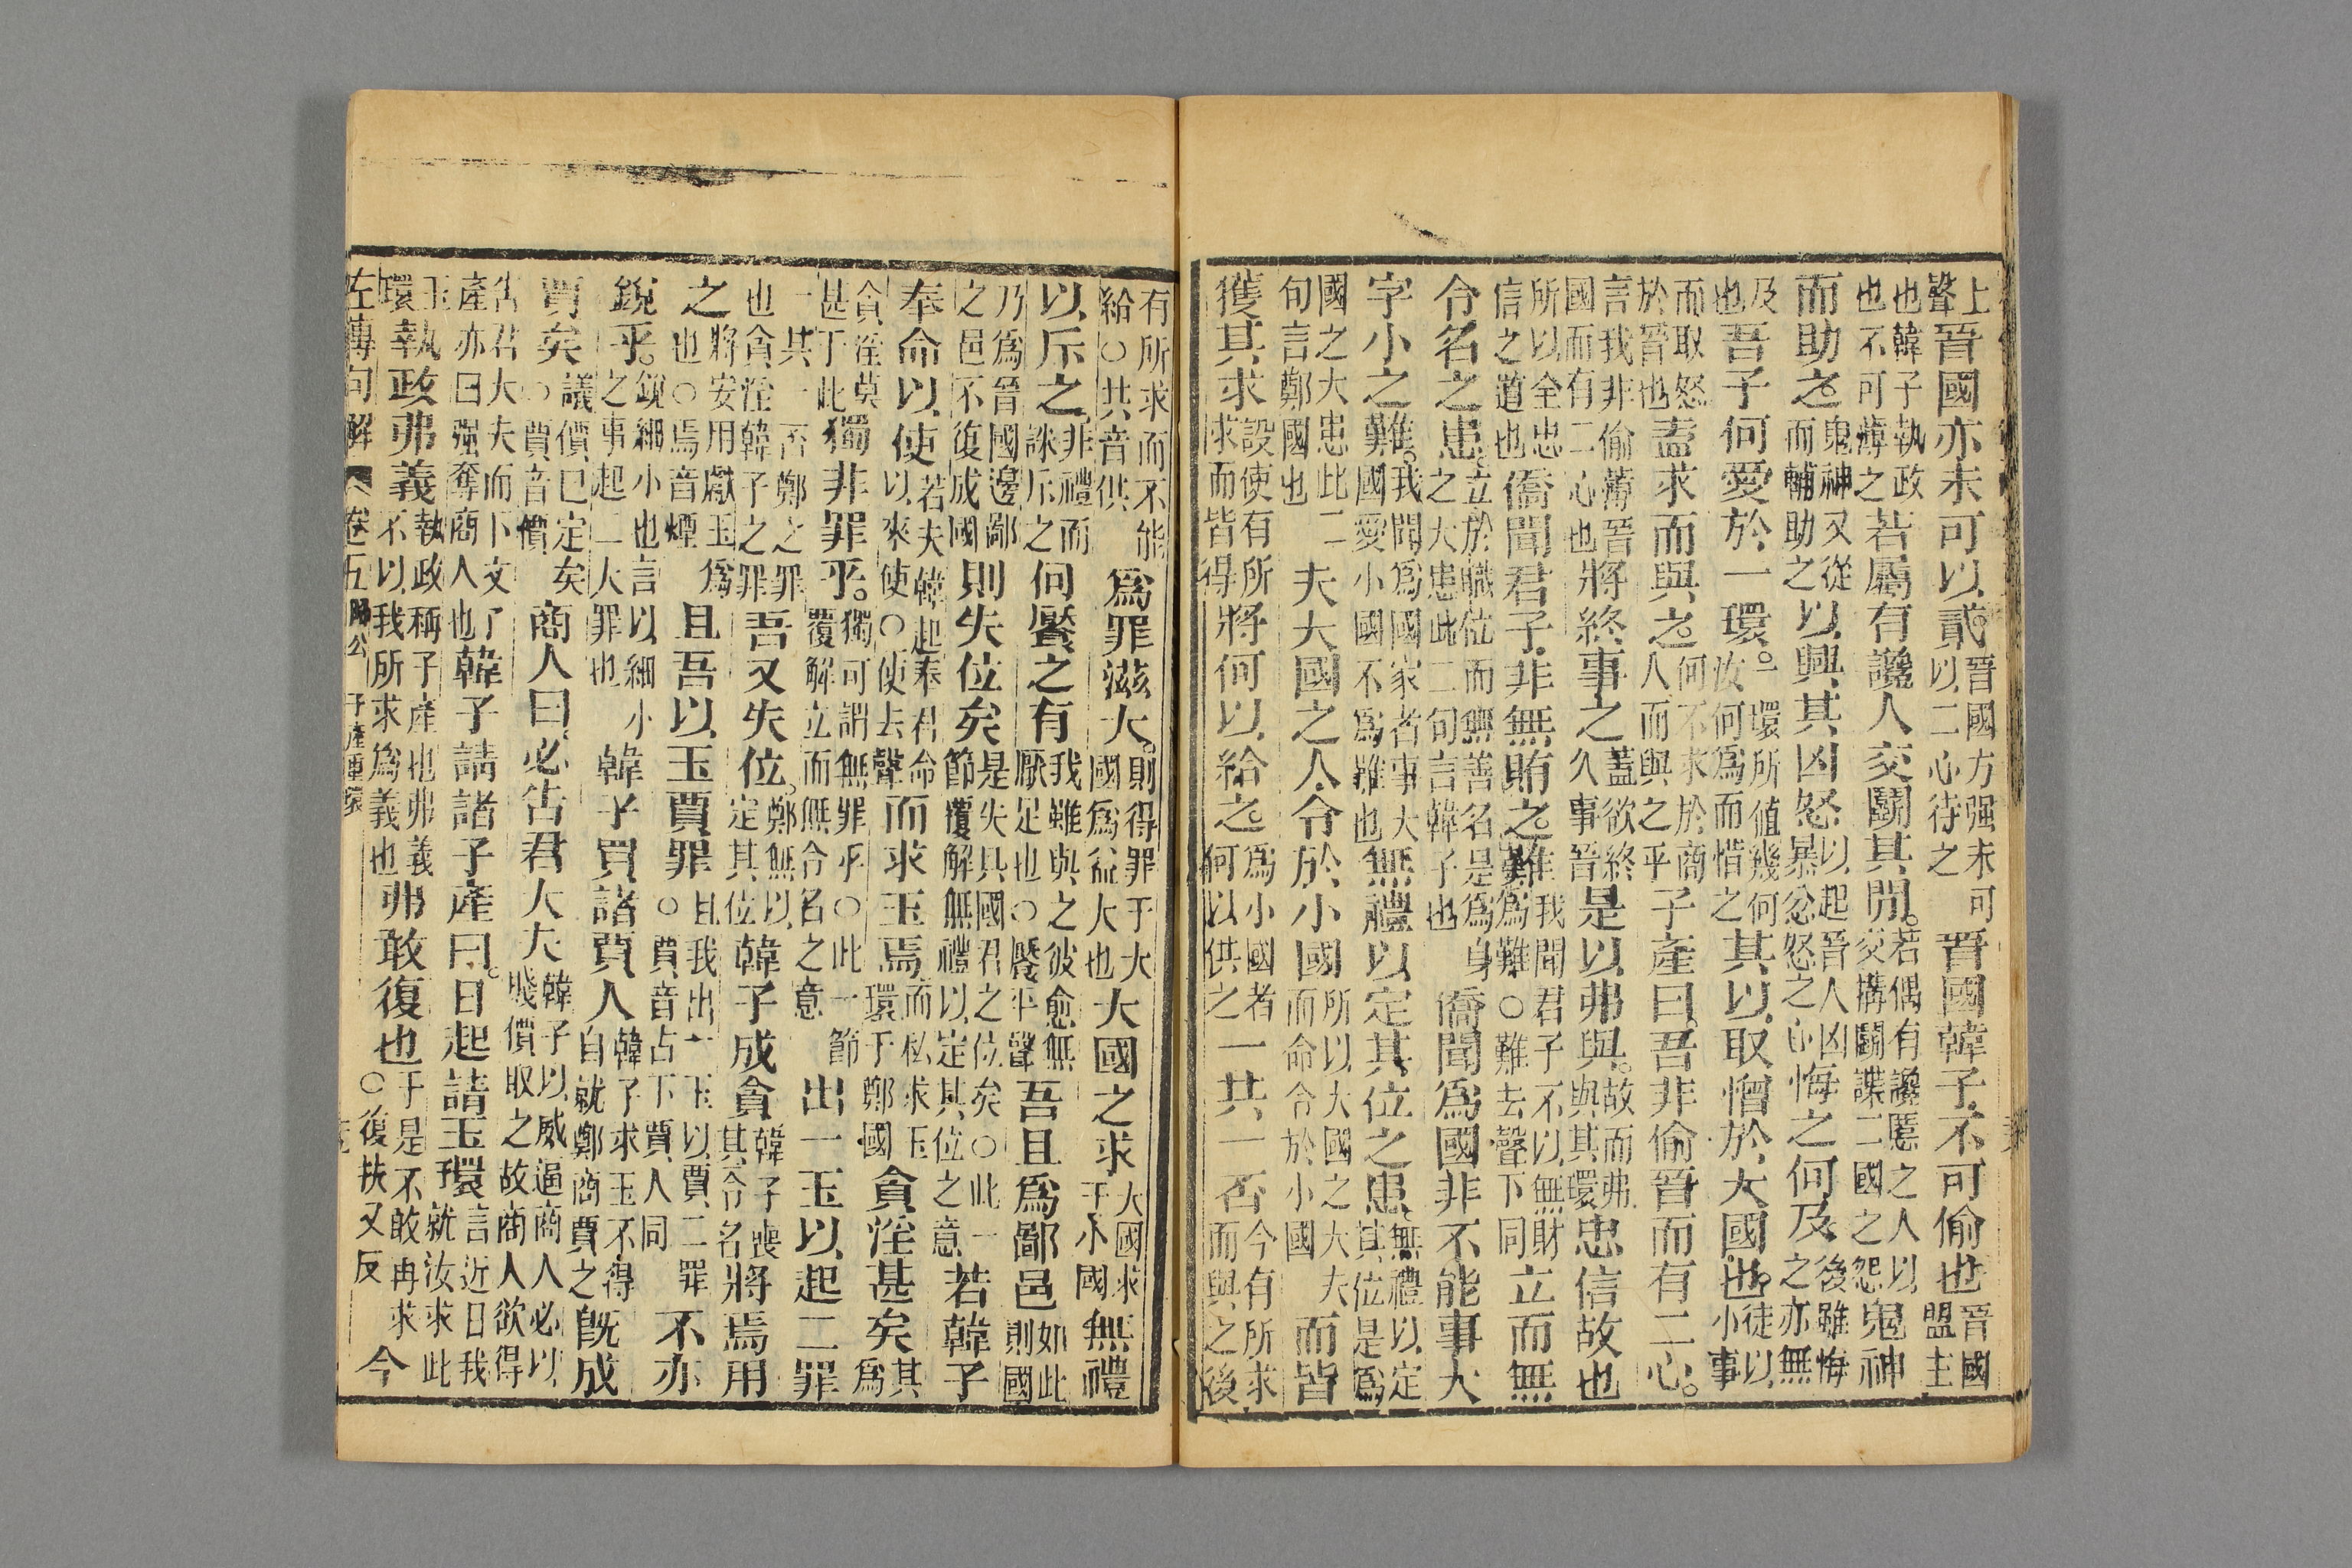 上聲晉國亦未可以貳晉國方强未可以二心待之晉國韓子不可偷也晉國盟主
也韓子執政也不可薄之若屬有讒人交鬭其間若偶有讒慝之人以交搆鬭諜二國之怨鬼神
而助之鬼神又從而輔助之以興其凶怒以起晉人凶暴忿怒之心悔之何及後雖悔之亦無
及也吾子何愛於一環一環所値幾何汝何爲而惜之其以取憎於大國也徒以小事
而取怒於晉也盍求而與之何不求於商人而與之乎子產曰吾非偷晉而有二心
言我非偷薄晉國而有二心也將終事之蓋欲終久事晉是以弗與故而弗與其環忠信故也
所以全忠信之道也僑聞君子非無賄之難非我聞君子不以無財爲難○難去聲下同立而無
令名之患立於職位而無善名是爲身之大患此二句言韓子也僑聞爲國非不能事大
字小之難我聞爲國家者事大國愛小國不爲難也無禮以定其位之患無禮以定其位是爲
國之大患此二句言鄭國也夫大國之人令於小國所以大國之大夫而命令於小國而皆
獲其求設使有所求而皆得將何以給之爲小國者何以供之一共一否今有所求而與之後
有所求而不能給○共音供爲罪滋大則得罪于大國爲益大也大國之求大國求于小國無禮
以斥之非禮而誅斥之何饜之有我雖與之彼愈無厭足也○饜平聲吾且爲鄙邑如此則國
乃爲晉國邊鄙之邑不復成國則失位矣是失其國君之位矣○此一節覆解無禮以定其位之意若韓子
奉命以使若夫韓起奉君命以來使○使去聲而求玉焉而私求玉環于鄭國貪淫甚矣其爲
貪淫莫甚于此獨非罪乎獨可謂無罪乎○此一節覆解立而無令名之意出一玉以起二罪
一共一否鄭之罪也貪淫韓子之罪吾又失位鄭無以定其位韓子成貪韓子喪其令名將焉用
之將安用獻玉爲也○焉音煙且吾以玉賈罪且我出一玉以賈二罪○賈音占下賈人同不亦
銳乎銳細小也言以細小之事起二大罪也韓子買諸賈人韓子求玉不得自就鄭商賈之旣成
賈矣議價已定矣○賈音價商人曰必告君大夫韓子以威逼商人必以賤價取之故商人欲得
告君大夫而下文子產亦曰强奪商人也韓子請諸子產曰日起請玉環言近日我就汝求此
玉環執政弗義執政稱子產也弗義不以我所求爲義也弗敢復也于是不敢再求○復扶又反今
左傳句解　卷五　昭公　子產重環